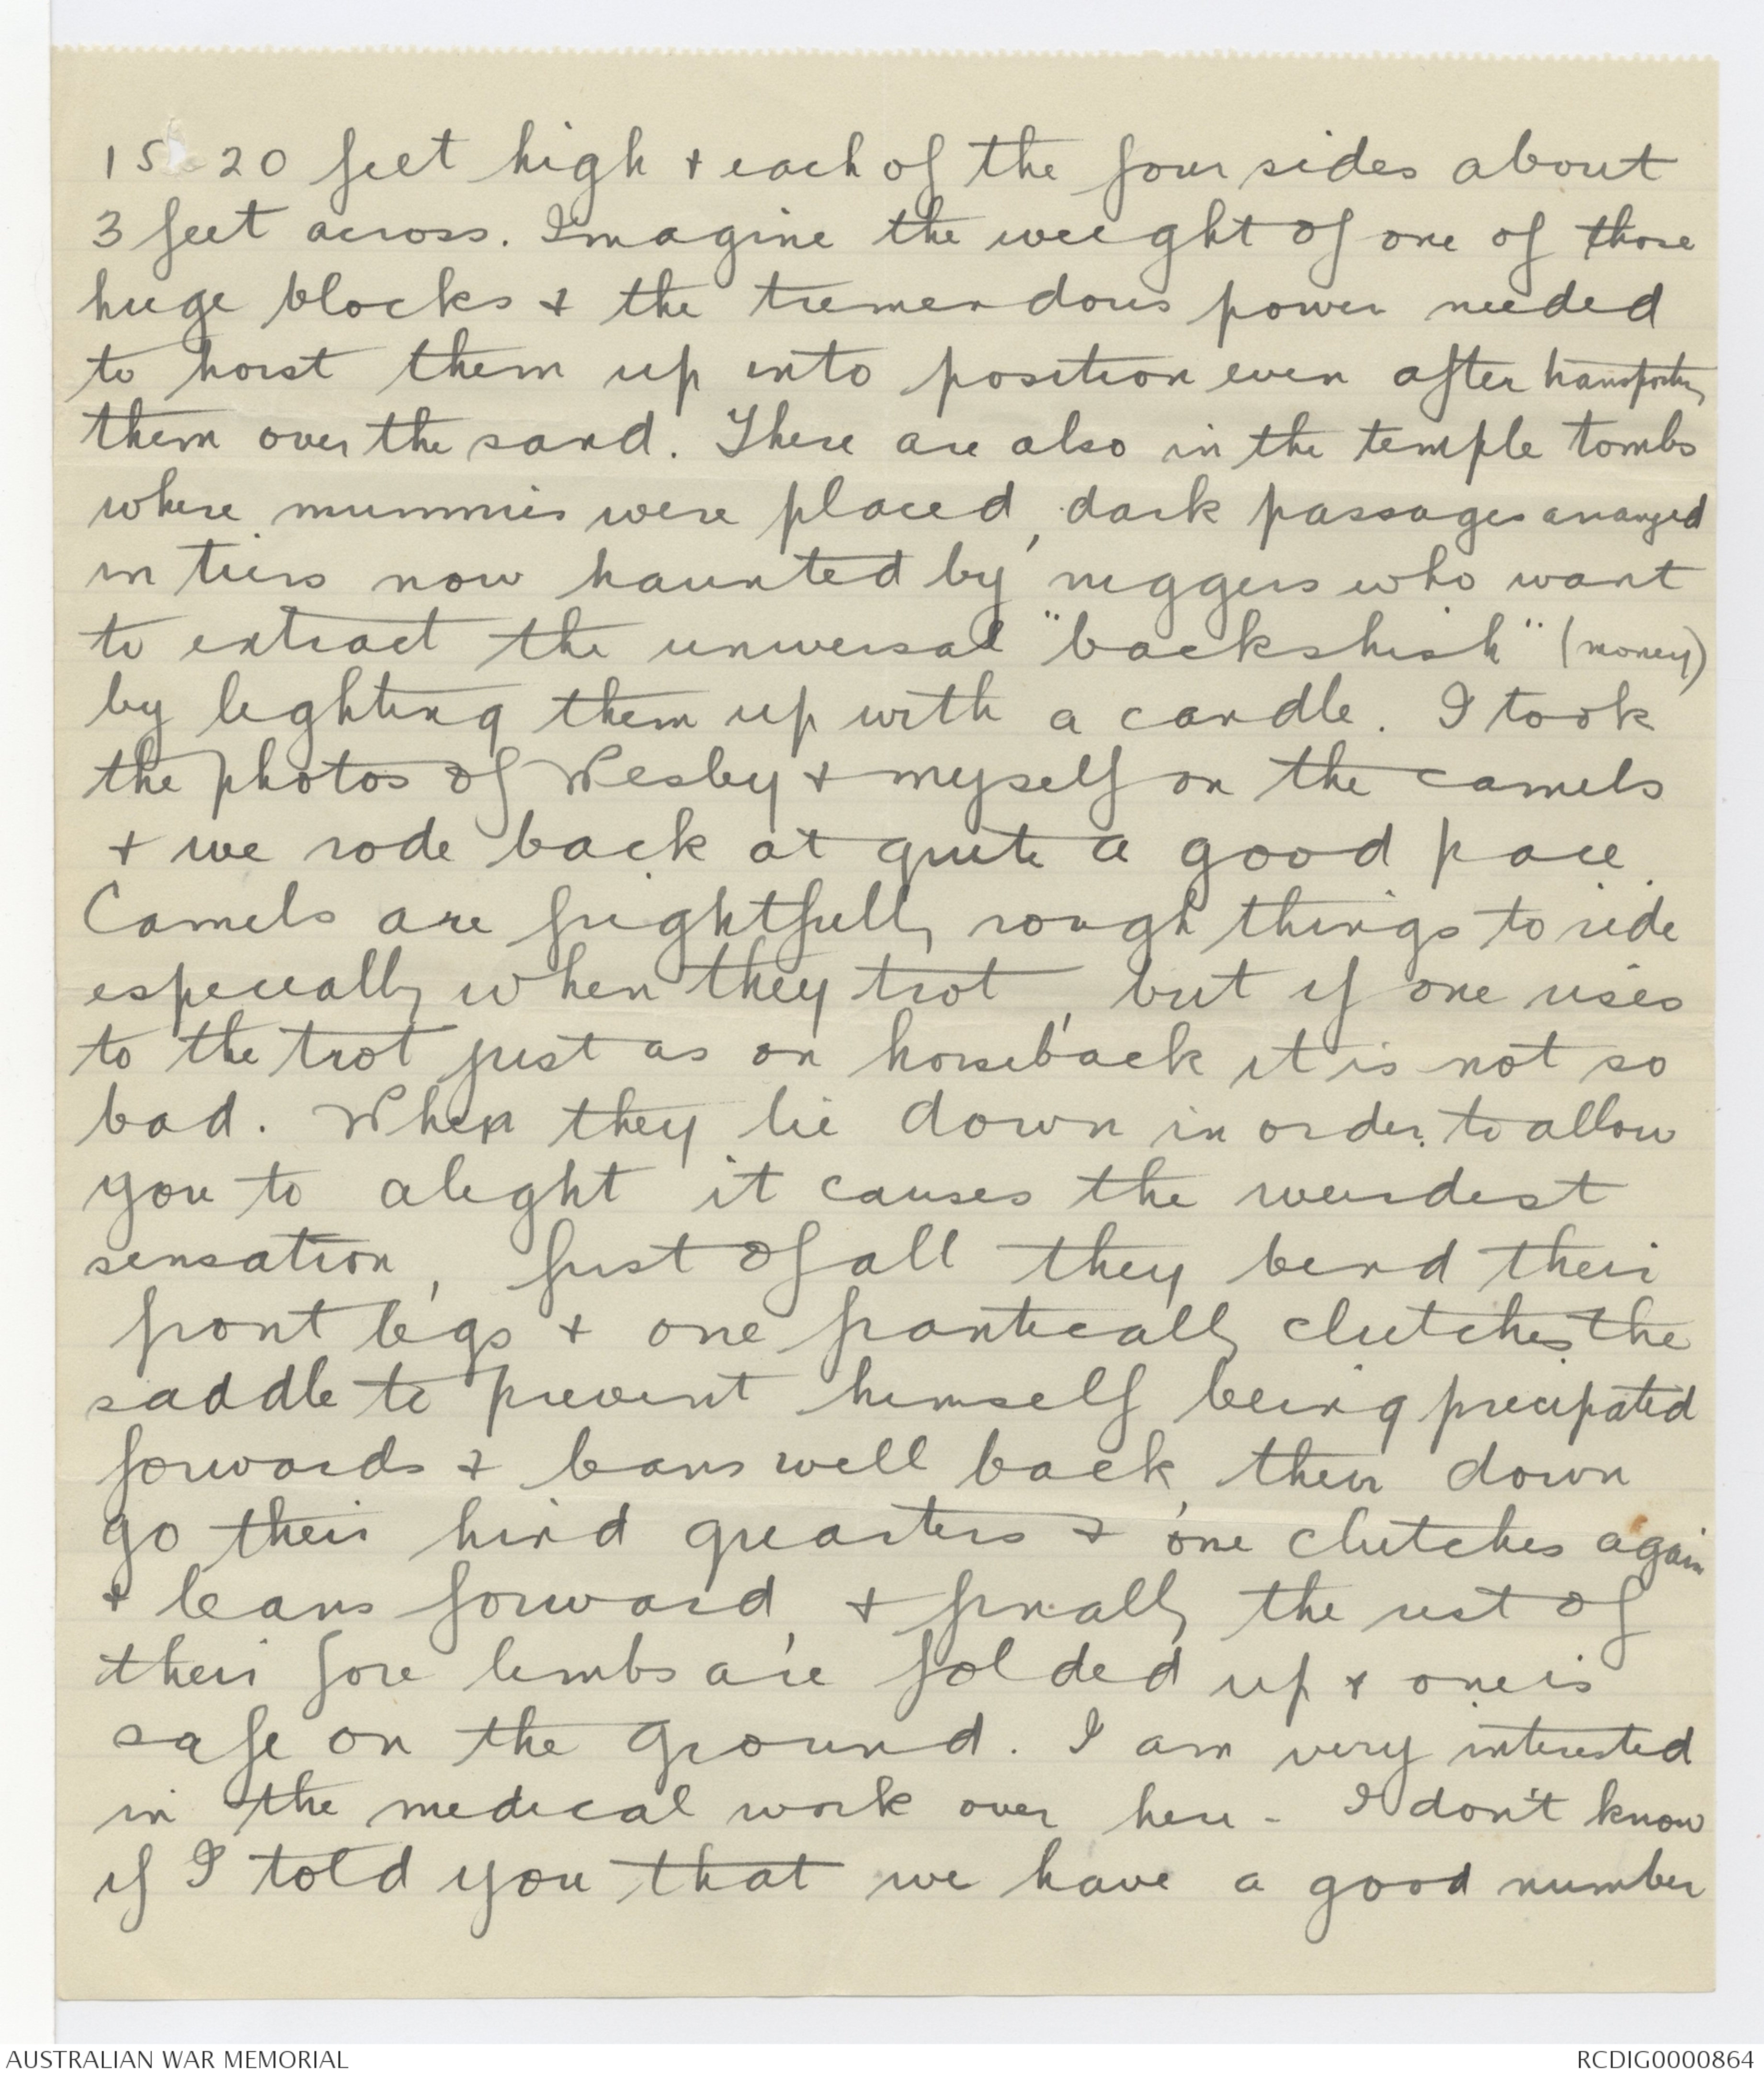 15 20 feet high + each of the four sides about
3 feet across. Imagine the weight of one of those
huge blocks + the tremendous power needed
to hoist them up into position even after transporting
them over the sand. There are also in the temple tombs
where mummies were placed, dark passages arranged
in tiers now haunted by niggers who want
to extract the universal "backshish" (money)
by lighting them up with a candle. I took
the photos of Wesley + myself on the camels
+ we rode back at quite a good pace.
Camels are frightfully rough things to ride
especially when they trot, but if one rises
to the trot just as on horseback it is not so
bad. When they lie down in order to allow
you to alight it causes the weirdest
sensation, first of all they bend their
front legs + one frantically clutches the
saddle to prevent himself being precipated
forwards + leans well back, then down
go their hind quarters + one clutches again
+ leans forward, + finally the rest of
their fore limbs are folded up + one is
safe on the ground. I am very interested
in the medical work over here - I don't know
if I told you that we have a good number
AUSTRALIAN WAR MEMORIAL
RCDIG0000864